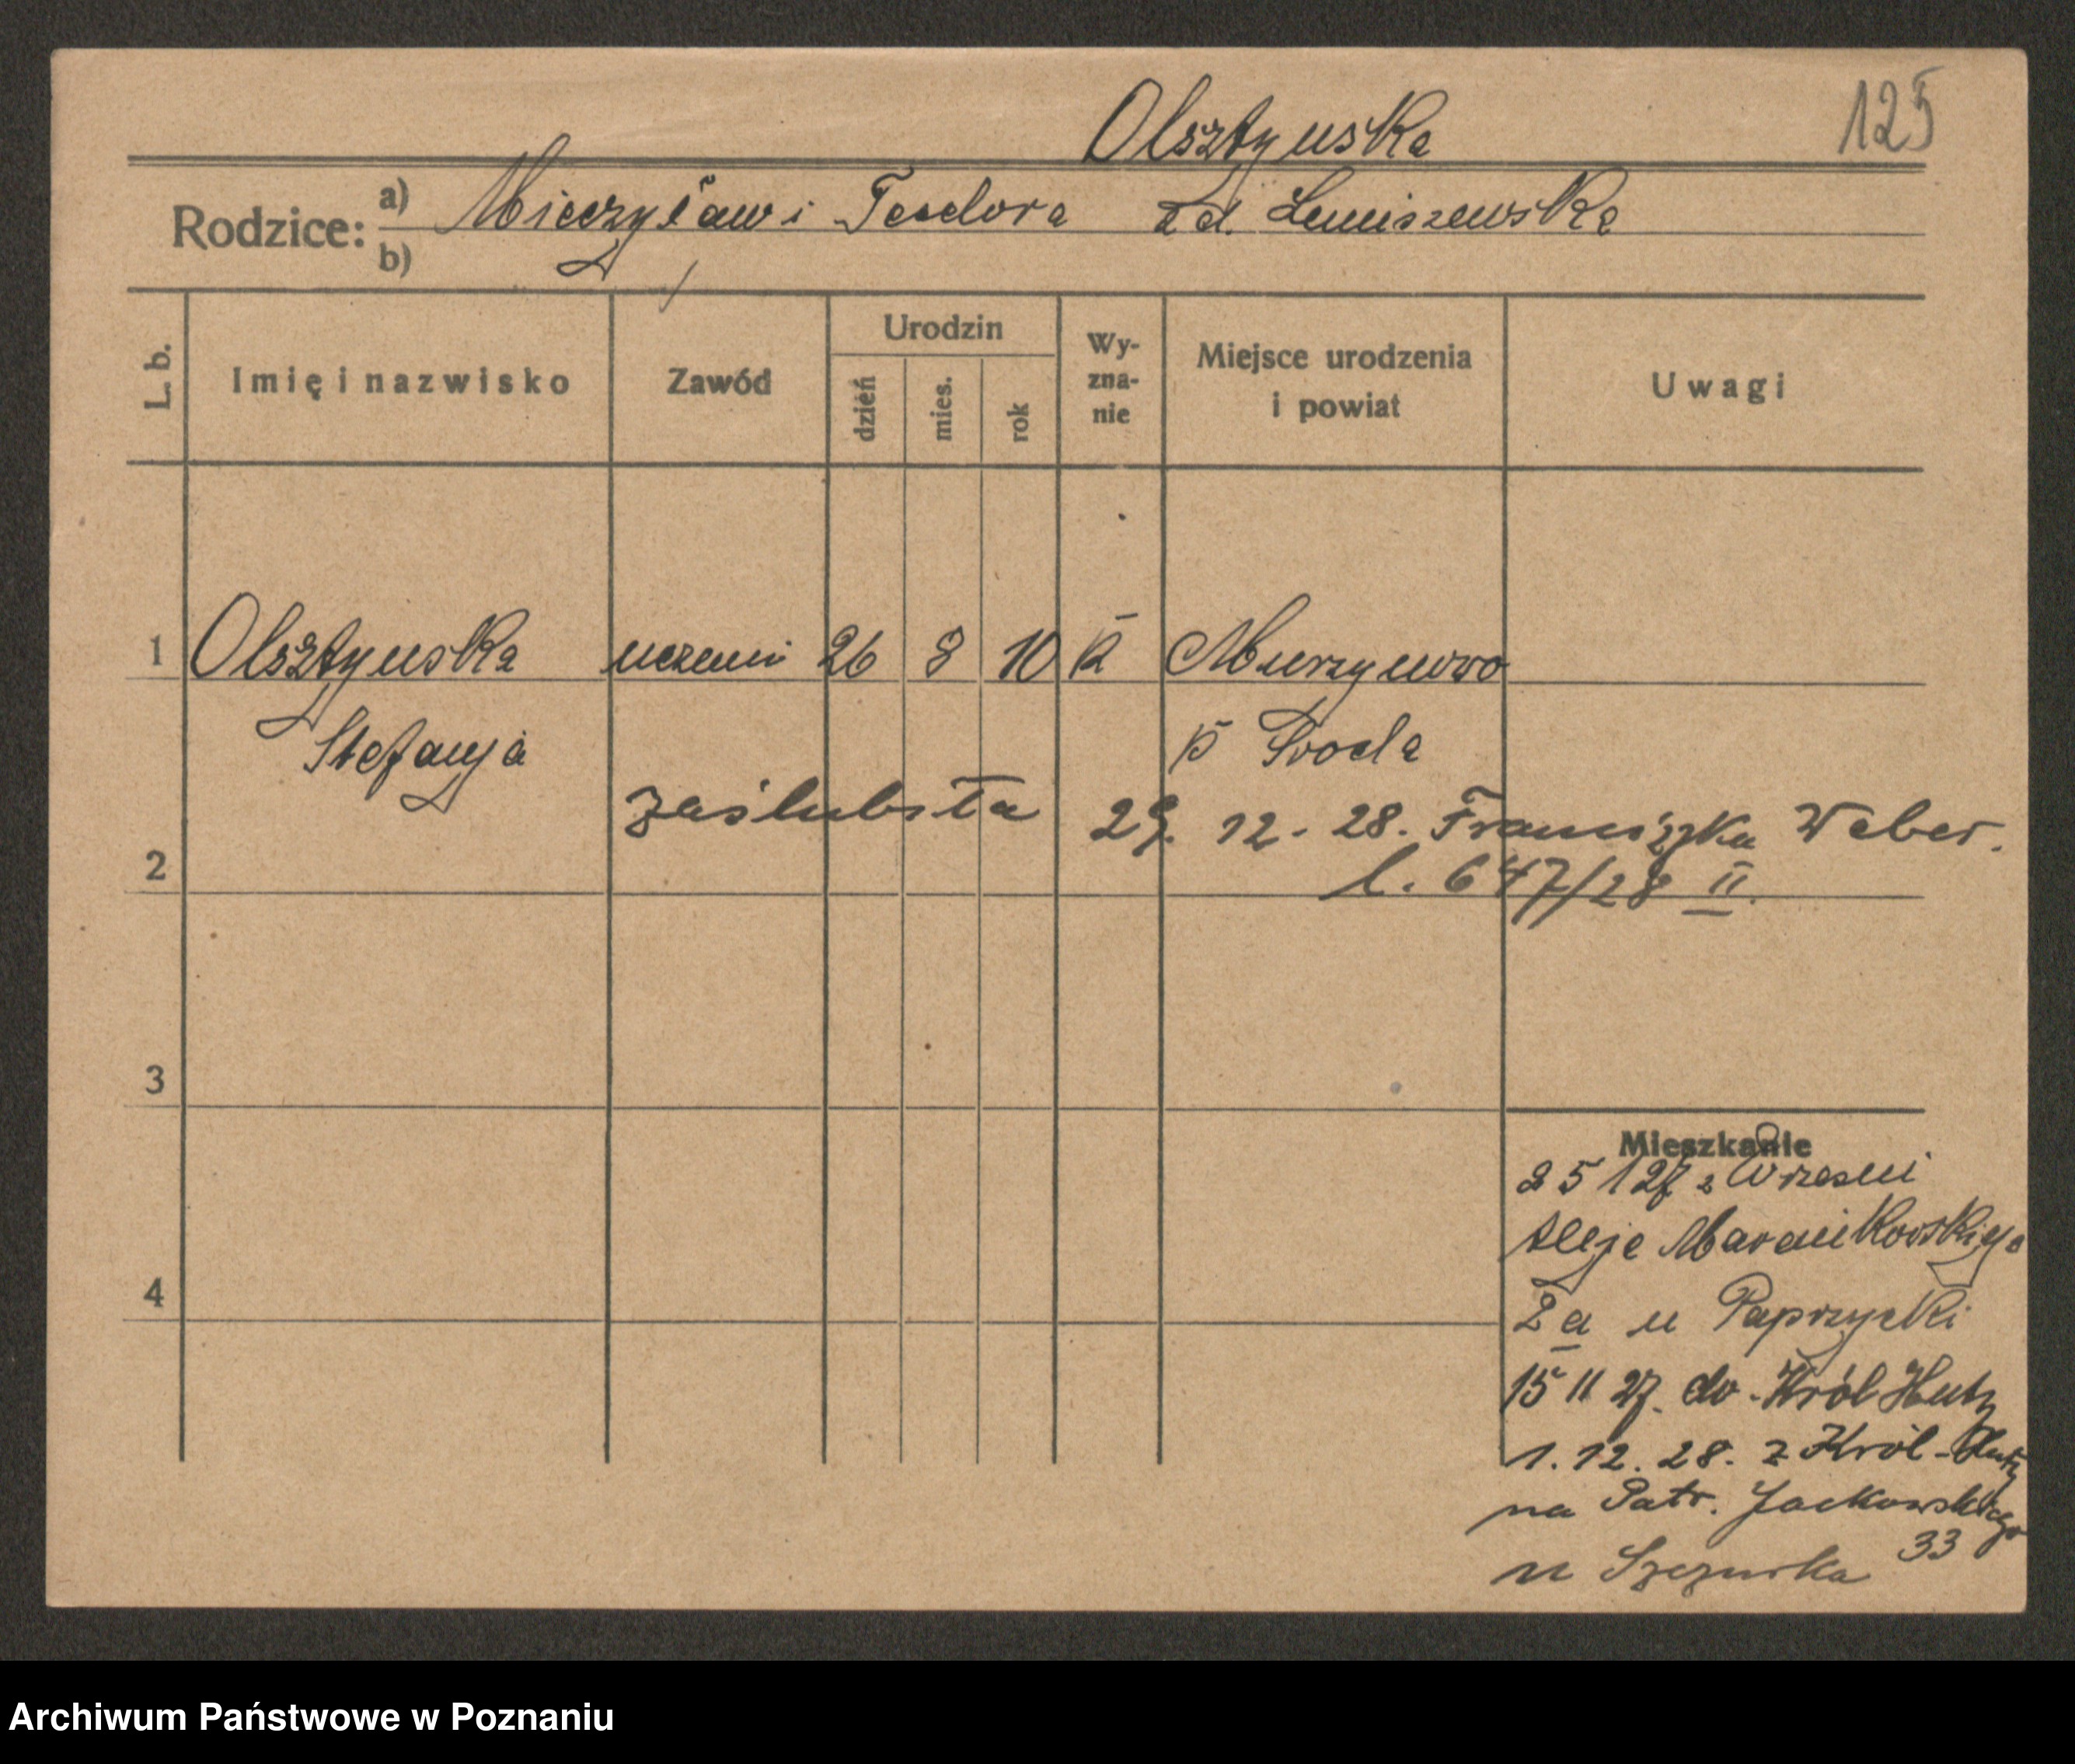 Olsztynska 125
Rodzice: a) Mieczysław i Teodora z d. Lemiszewska
b)
L. b. Imię i nazwisko Zawód Urodzin dzień mies. rok Wy-zna-nie Miejsce urodzenia i powiat Uwagi
1 Olsztynska uczenni 26 8 10 k Murzynowo
Stefanja p Sroda
zaślubiła 29. 12. 28. Franciszka Weber.
2 l. 647/28 II.
3
Mieszkanie
25 1 27 z Wrzesni
Aleje Marcinkowskiego
4
2a u Paprzycki
15 11 27. do Król Huty
1. 12. 28. z Król-Huty
na Patr. Jackowskiego
33
u Szczurka
Archiwum Państwowe w Poznaniu